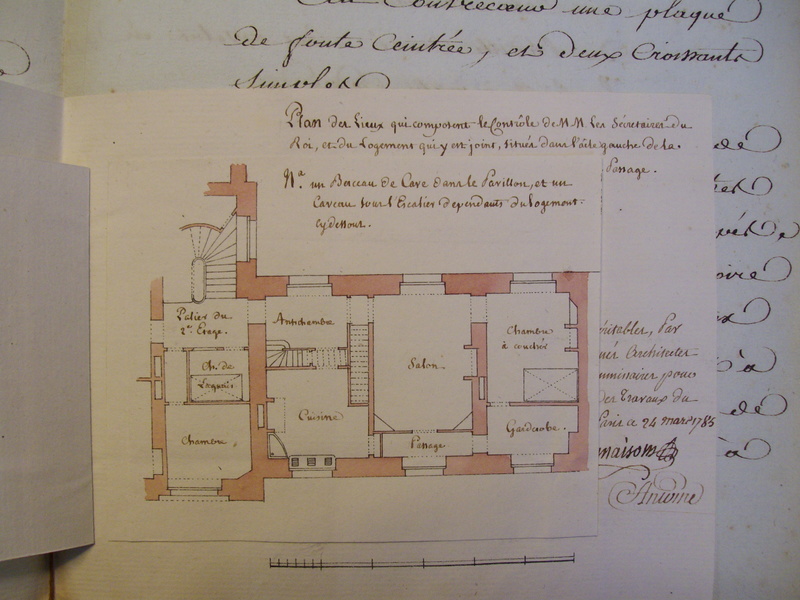 au Contrecœur une plaque
de fonte Ceintrée, et deux Croissants
simples
Plan des Lieux qui composent le Contrôle de MM Les Sécretaires du
Roi, et du Logement qui y est joint, situés dans l'aile gauche de la
Passage.
Na. un Berceau de Cave dans le Pavillon, et un
Caveau sous l'Escalier dependants du logement
cy dessus.
Palier du
2e. Etage.
Antichambre
Chambre
à coucher
Salon
Ch. de
Laquais
Cuisine
Chambre
Passage
Garderobe.
éritables, Par
Architectes
pour
des travaux du
Paris ce 24 mars 1785
Antoine